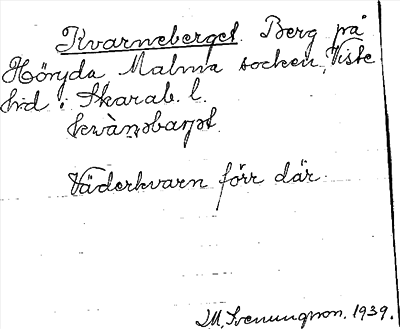 Kvarneberget. Berg på
Höryda, Malma socken, Viste
hd i Skarab. l.
kwànəbarjət.
Väderkvarn förr där.
M. Svenungson. 1939.